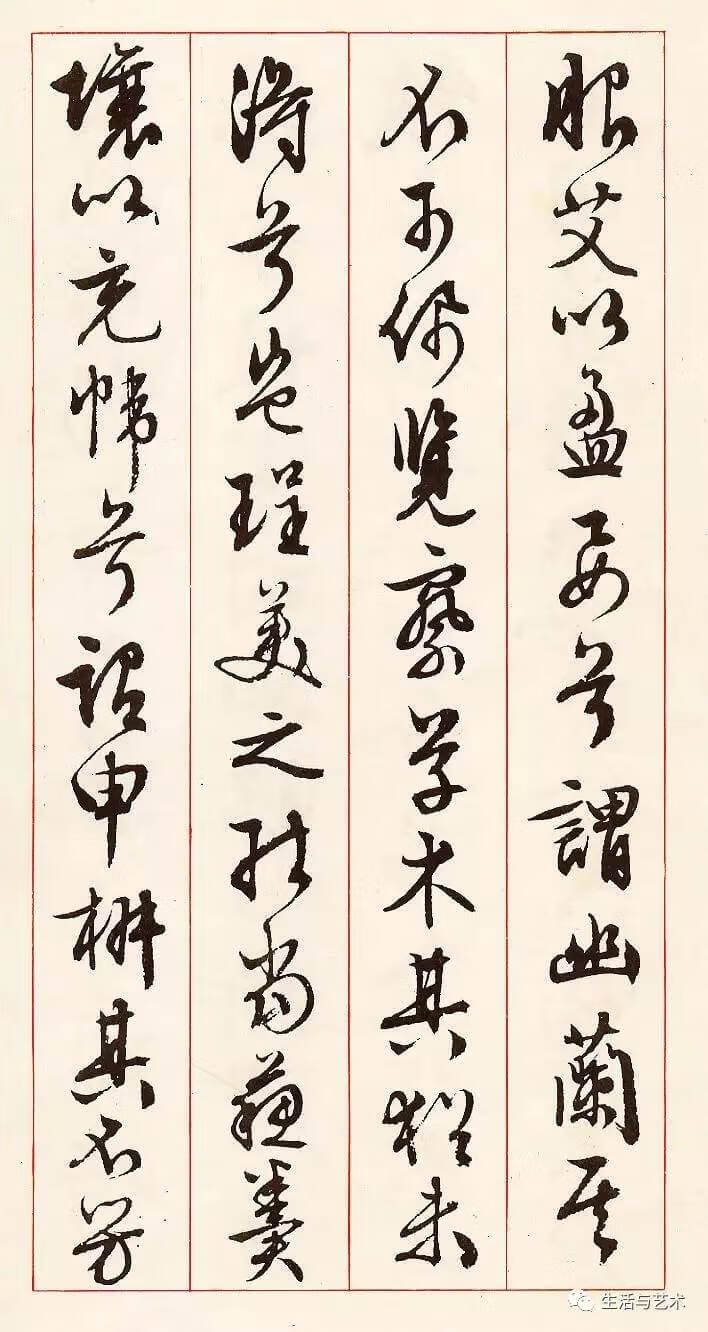 服艾以盈要兮謂幽蘭其
不可佩覽察草木其猶未
得兮豈珵美之能當蘇糞
壤以充幃兮謂申椒其不芳
生活与艺术